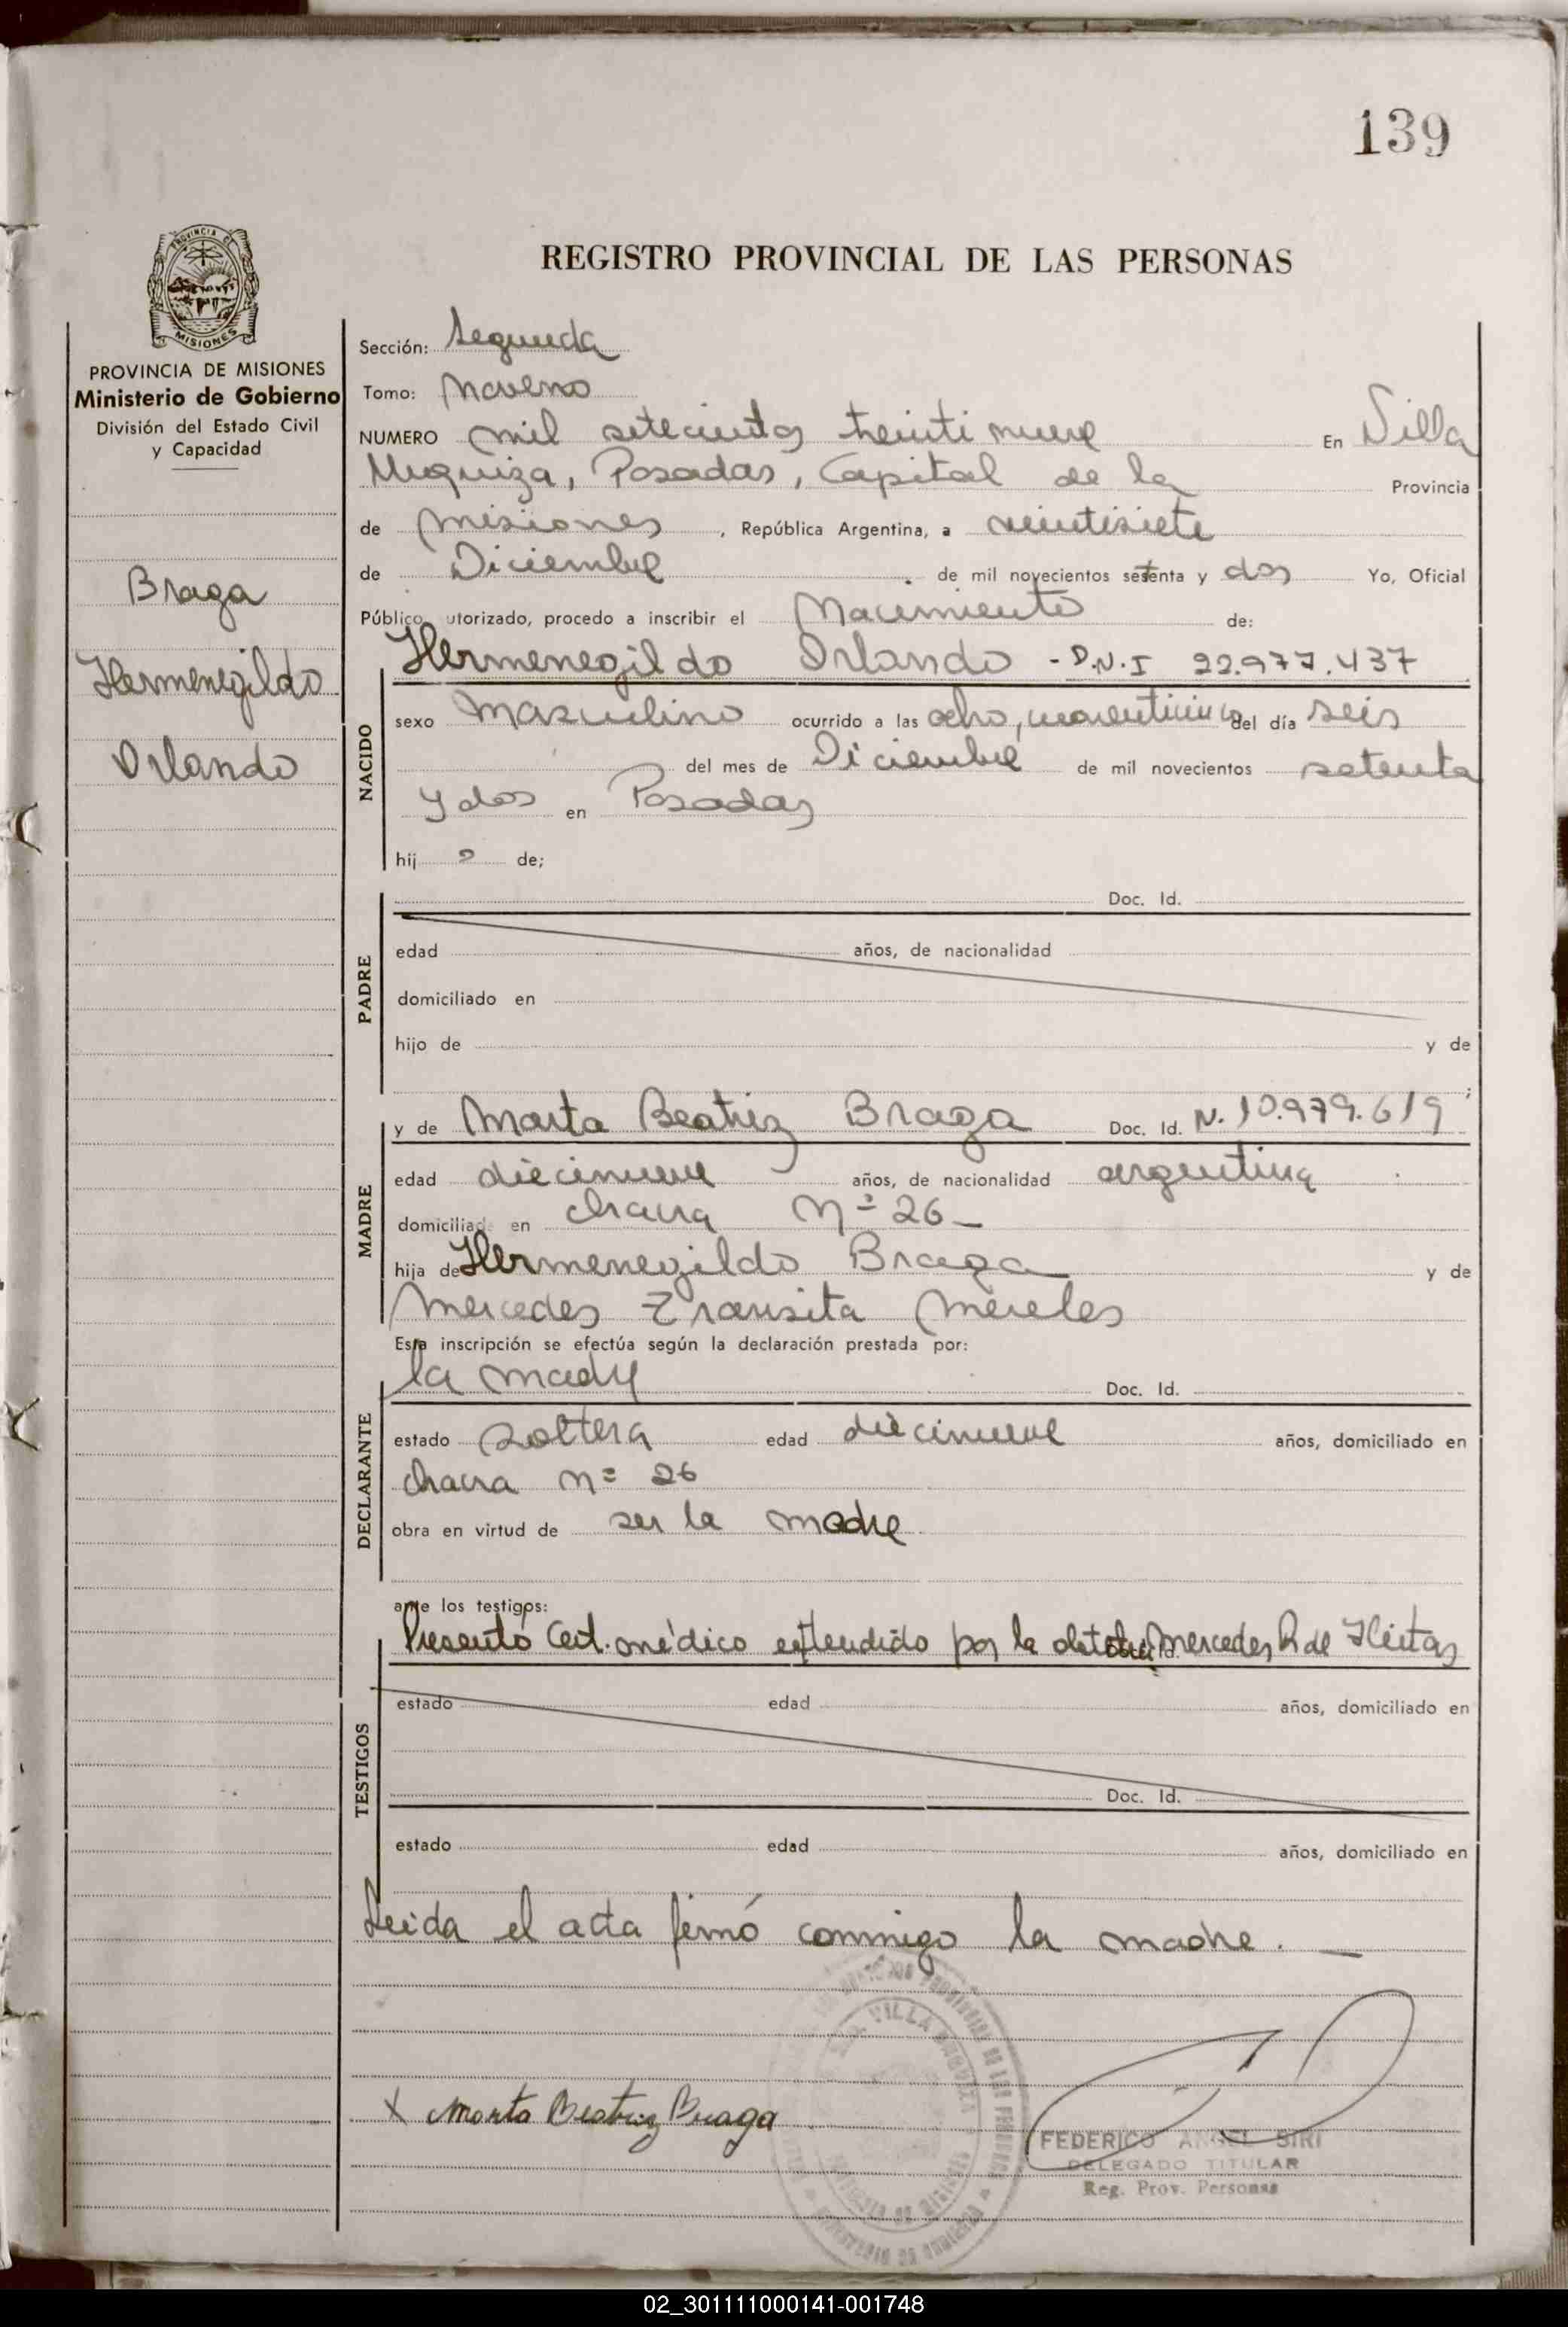 139
PROVINCIA DE
MISIONES
REGISTRO PROVINCIAL DE LAS PERSONAS
PROVINCIA DE MISIONES
Ministerio de Gobierno
División del Estado Civil
y Capacidad
Braga
Hermenegildo
Orlando
Sección: Segunda
Tomo: Noveno
NUMERO mil setecientos treinti nueve En Villa
Urquiza, Posadas, Capital de la Provincia
de Misiones, República Argentina, a veintisiete
de Diciembre de mil novecientos setenta y dos Yo, Oficial
Público utorizado, procedo a inscribir el Nacimiento de:
Hermenegildo Orlando - D.N.I 22.977.437
NACIDO
sexo Masculino ocurrido a las ocho, cuarenticinco del día seis
del mes de Diciembre de mil novecientos setenta
y dos en Posadas
hij o de;
PADRE
Doc. Id.
edad años, de nacionalidad
domiciliado en
hijo de y de
;
MADRE
y de Marta Beatriz Braga Doc. Id. N. 10.979.619
edad diecinueve años, de nacionalidad argentina
domiciliad en chacra Nº 26 -
hija de Hermenegildo Braga y de
Mercedes Transita Mereles
Esta inscripción se efectúa según la declaración prestada por:
DECLARANTE
la madre Doc. Id.
estado soltera edad diecinueve años, domiciliado en
chacra nº 26
obra en virtud de ser la madre
ante los testigos:
TESTIGOS
Presentó Cert. médico extendido por la Mercedes R de
estado edad años, domiciliado en
Doc. Id.
estado edad años, domiciliado en
Leida el acta firmó conmigo la madre. —
X Marta Beatriz Braga
VILLA URQUIZA
FEDERICO ANGEL SIRI
DELEGADO TITULAR
Reg. Prov. Personas
02_301111000141-001748